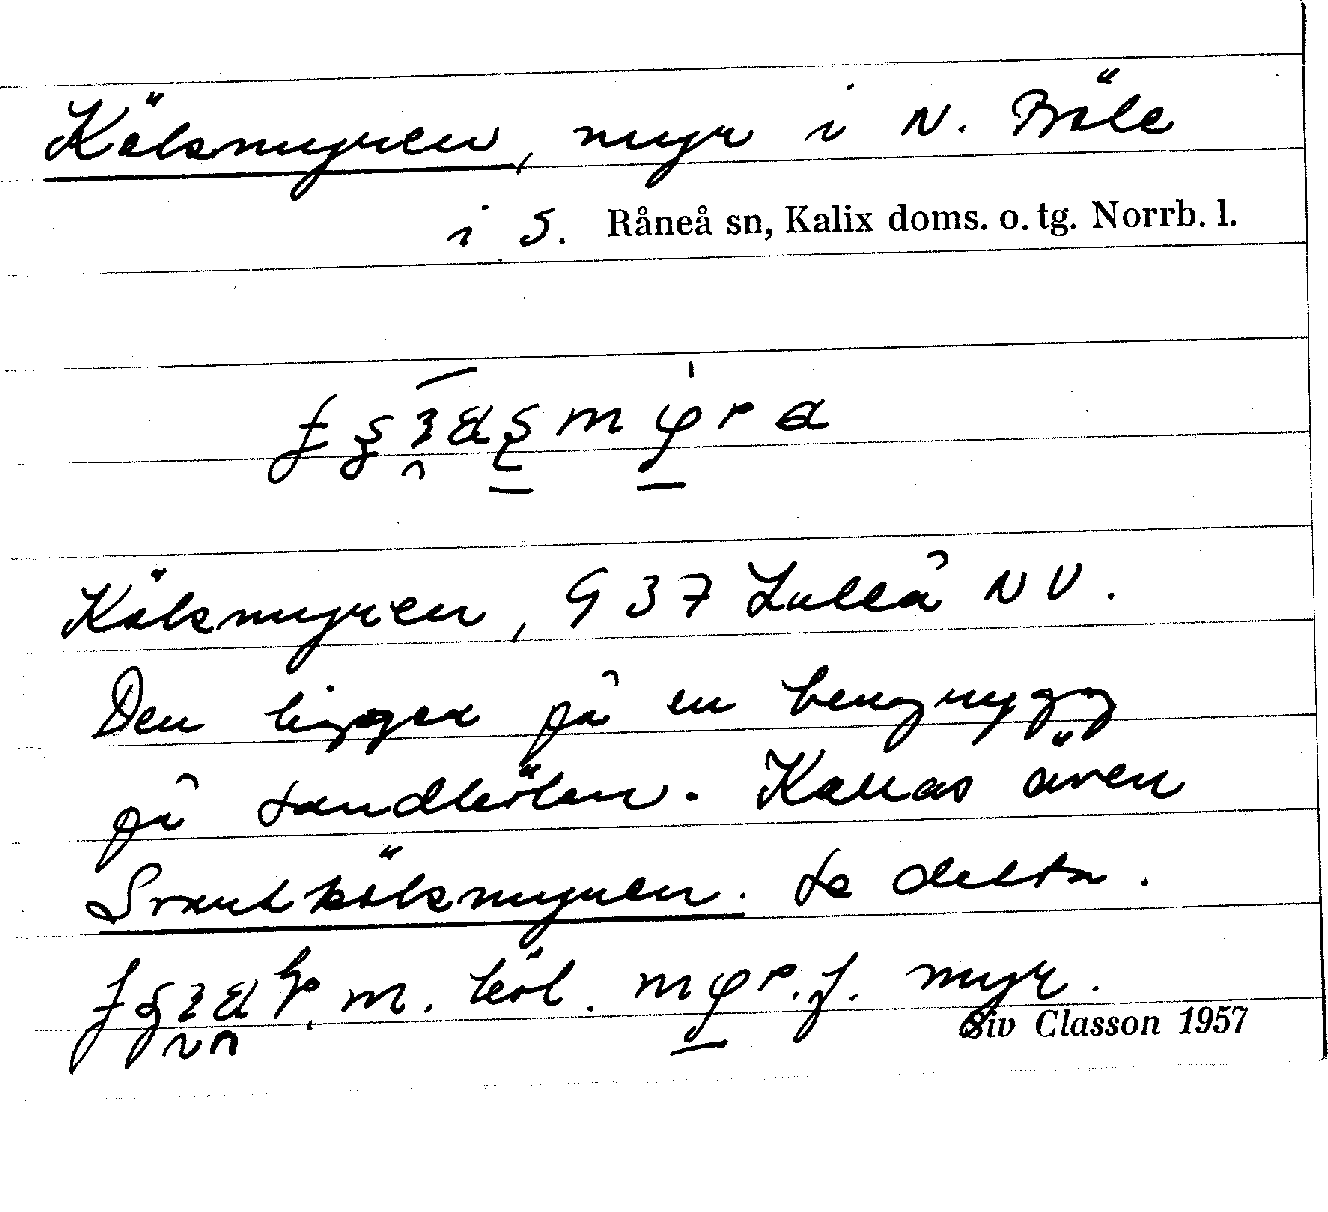 Kölsmyren, myr i N. Böle
i S. Råneå sn, Kalix doms. o. tg. Norrb. l.
Kölsmyren, 9 37 Luleå NV.
Den ligger på en bergrygg
på sandkölen. Kallas även
Svartkölsmyren. Se detta.
m. köl. f. myr.
Siv Classon 1957